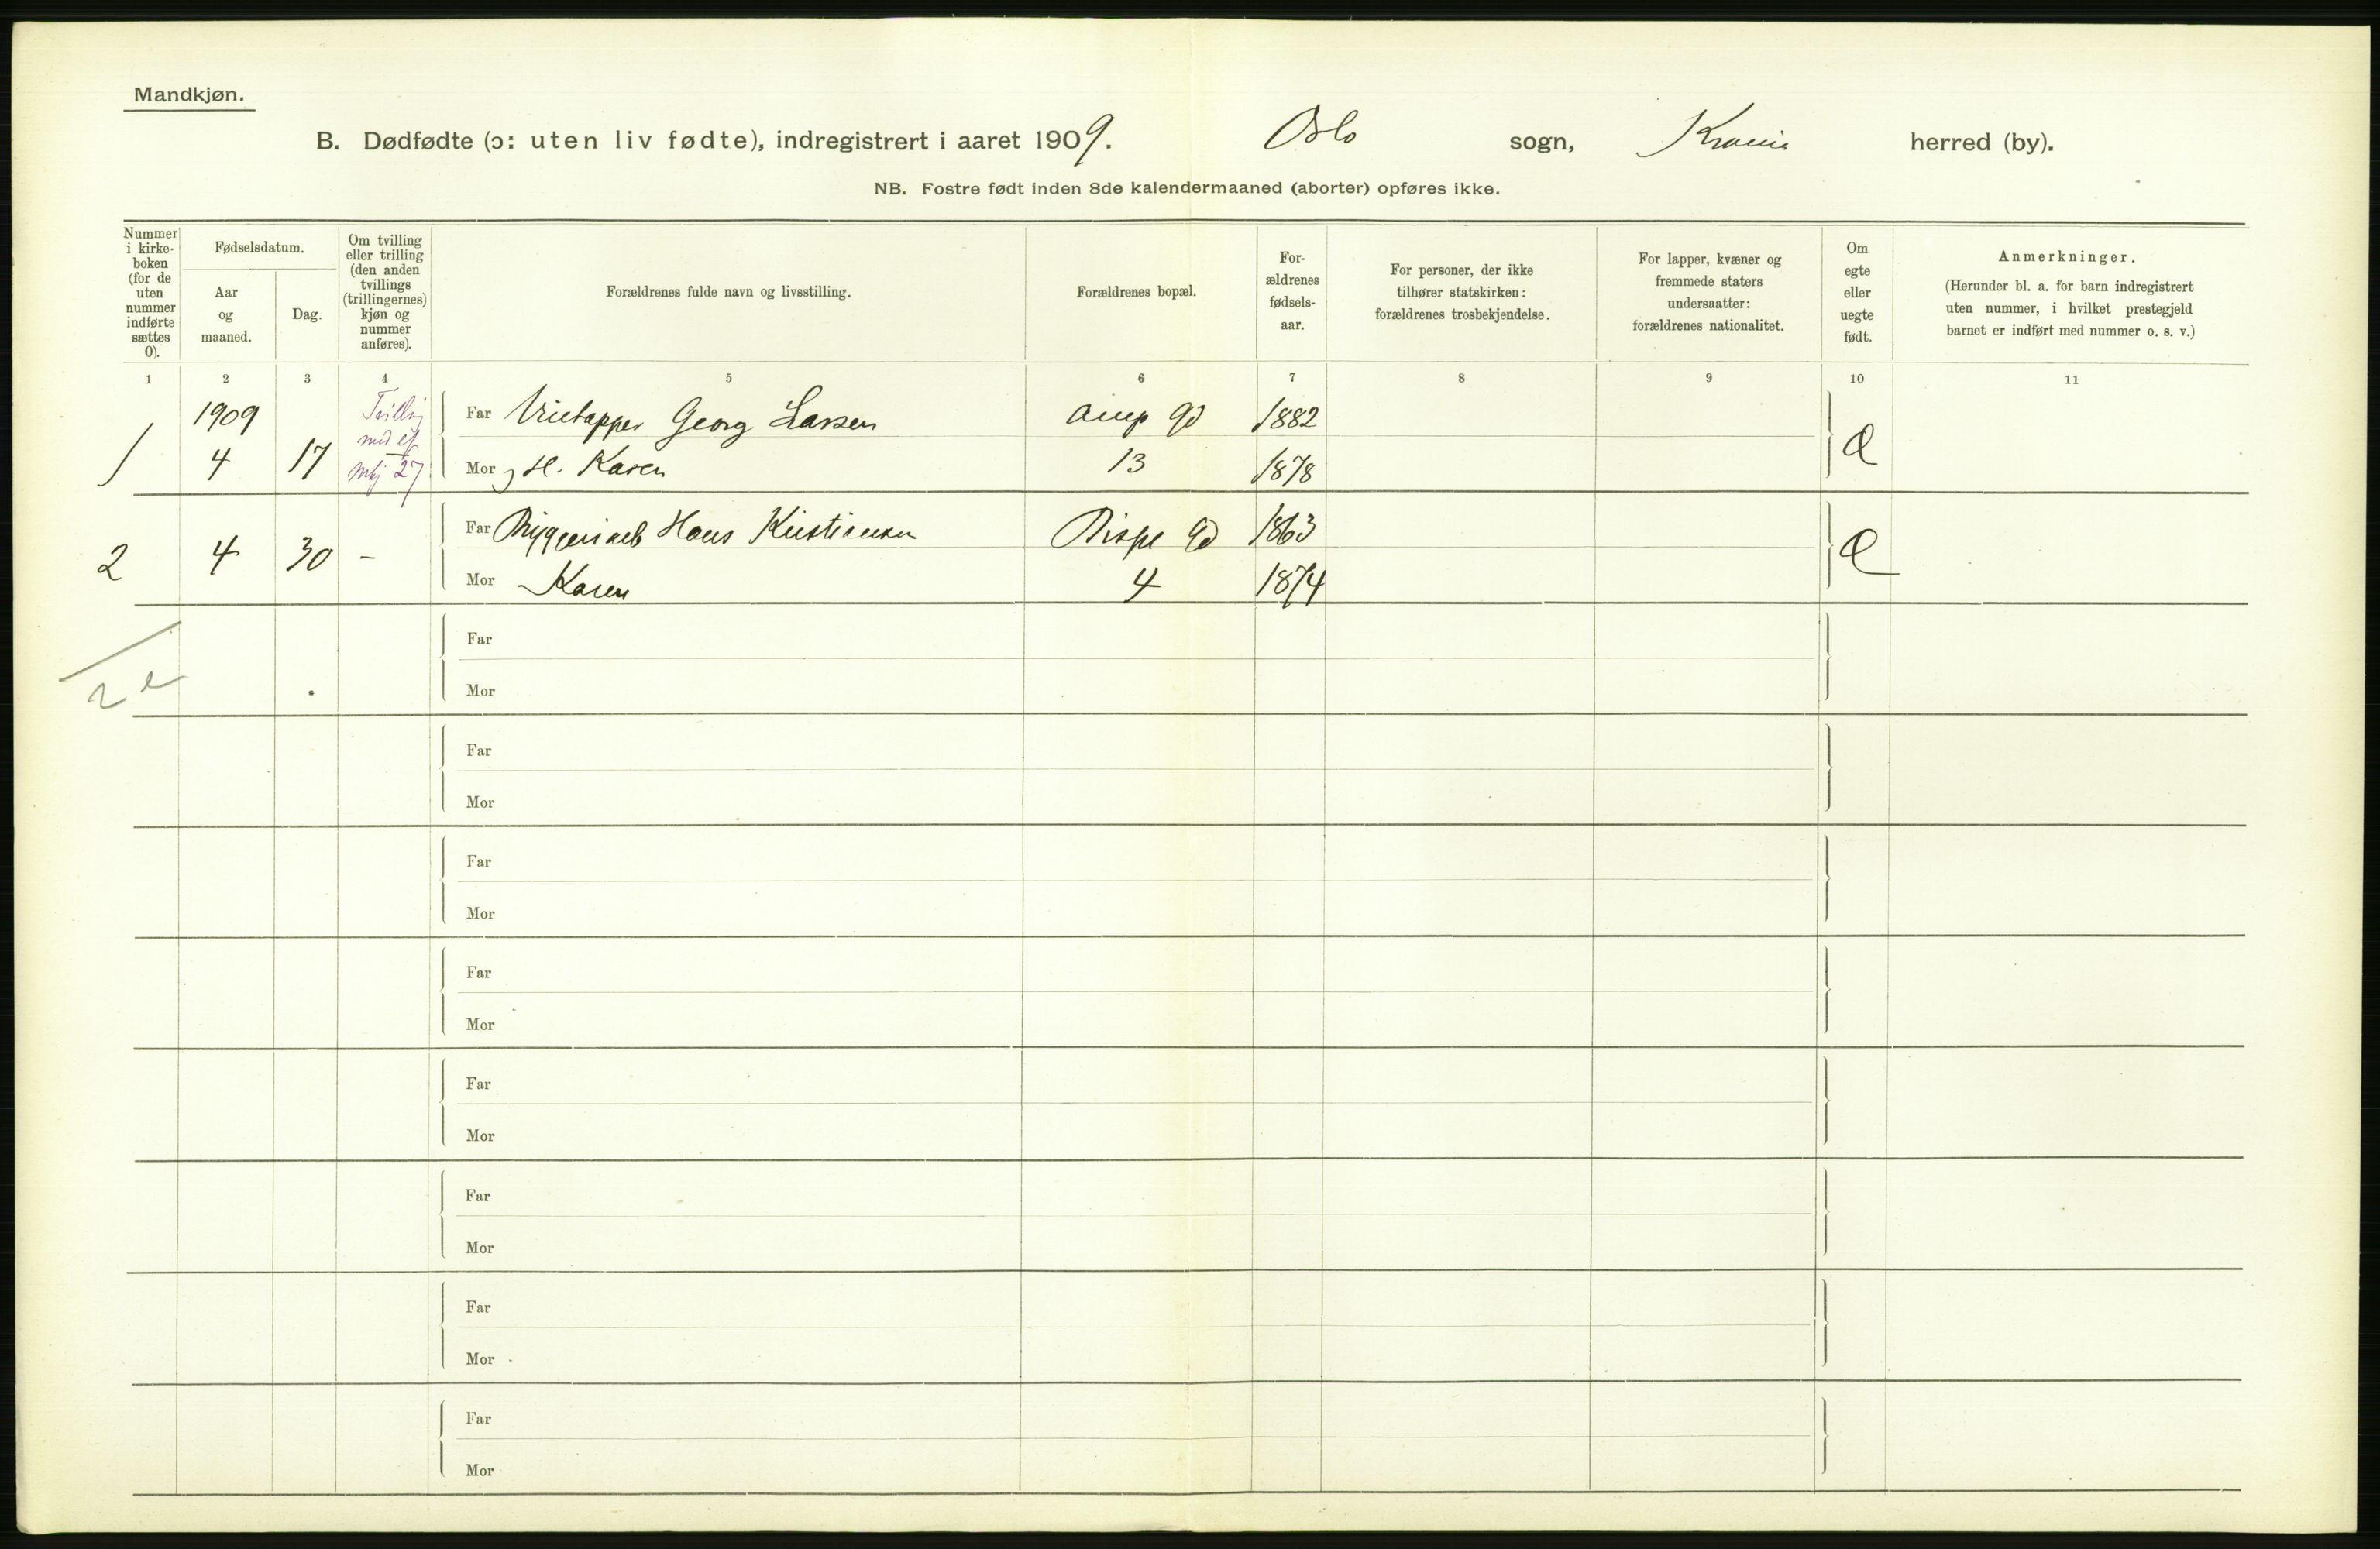 Mandkjøn.
B. Dødfødte (ɔ: uten liv fødte), indregistrert i aaret 1909. Oslo sogn, Krania herred (by).
NB. Fostre født inden 8de kalendermaaned (aborter) opføres ikke.
Nummer i kirke-boken (for de uten nummer indførte sættes 0).
Fødselsdatum.
Aar og maaned.
Dag.
Om tvilling eller trilling (den anden tvillings (trillingernes) kjøn og nummer anføres).
Forældrenes fulde navn og livsstilling.
Forældrenes bopæl.
For-ældrenes fødsels-aar.
For personer, der ikke tilhører statskirken: forældrenes trosbekjendelse.
For lapper, kvæner og fremmede staters undersaatter: forældrenes nationalitet.
Om egte eller uegte født.
Anmerkninger.
(Herunder bl. a. for barn indregistrert uten nummer, i hvilket prestegjeld barnet er indført med nummer o. s. v.)
1 2 3 4 5 6 7 8 9 10 11
1909 Far Georg Larsen 1882
1 4 17 27 Mor Karen 13 1878
Far Hans Kristiansen Bispe gd 1863
2 4 30 – Mor Karen 4 1874
Far
Mor
Far
Mor
Far
Mor
Far
Mor
Far
Mor
Far
Mor
Far
Mor
Far
Mor